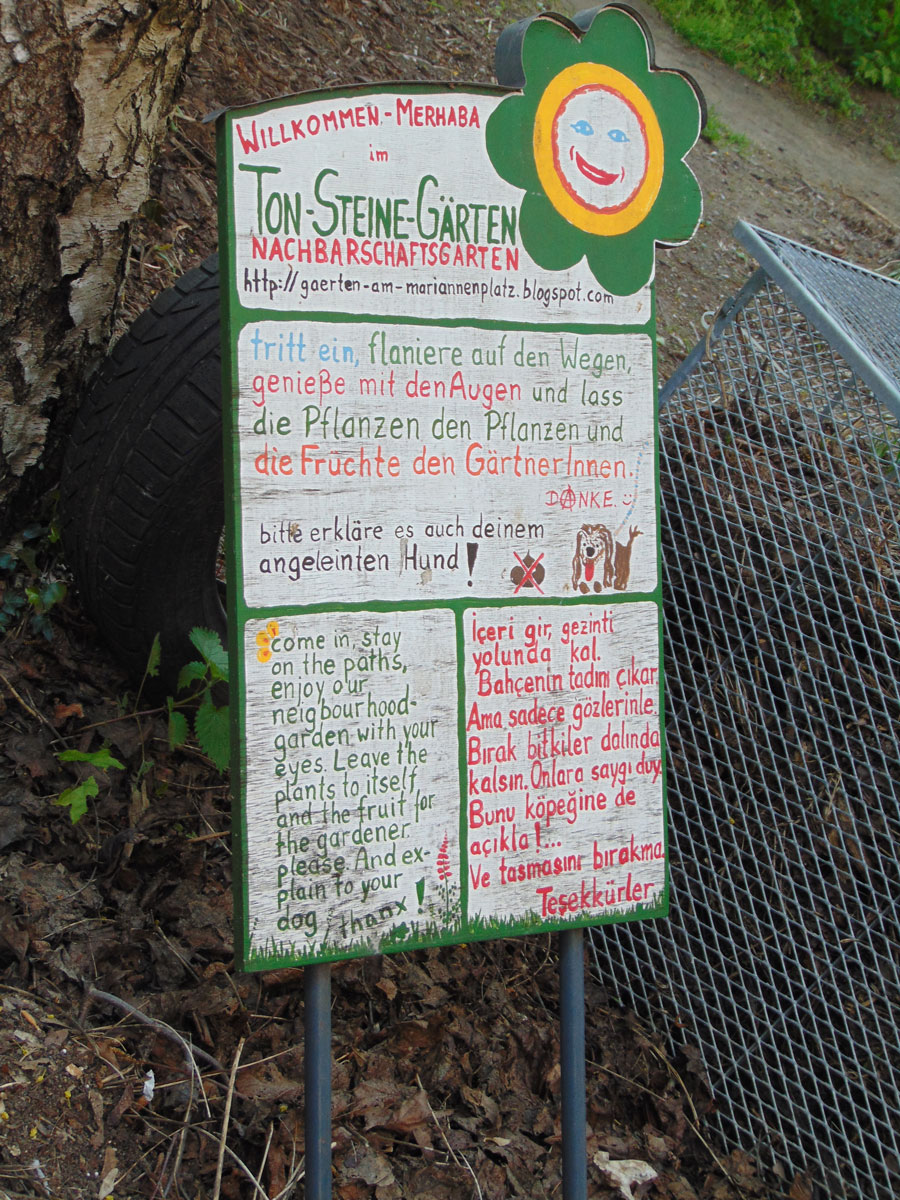 WILLKOMMEN-MERHABA
im
TON-STEINE-GÄRTEN
NACHBARSCHAFTSGARTEN
http://gaerten-am-mariannenplatz.blogspot.com
tritt ein, flaniere auf den Wegen,
genieße mit den Augen und lass
die Pflanzen den Pflanzen und
die Früchte den GärtnerInnen.
DANKE. :)
bitte erkläre es auch deinem
angeleinten Hund!
come in, stay
on the paths,
enjoy our
neigbourhood-
garden with your
eyes. Leave the
plants to itself
and the fruit for
the gardener.
please. And ex-
plain to your
dog, thanx!
İçeri gir, gezinti
yolunda kal.
Bahçenin tadını çıkar.
Ama sadece gözlerinle.
Bırak bitkiler dalında
kalsın. Onlara saygı duy.
Bunu köpeğine de
açıkla!...
Ve tasmasını bırakma.
Teşekkürler.